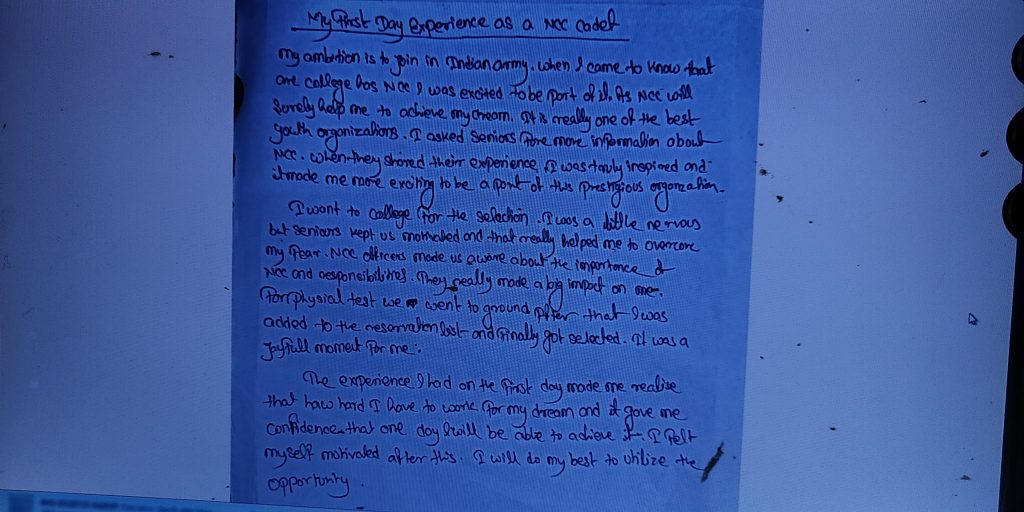 My First Day Experience as a NCC Cadet
My ambition is to join in Indian army. When I came to know that
are college has NCC I was excited to be part of it. As NCC will
Surely help me to achieve my dream. It is really one of the best
youth organizations. I asked Seniors for more information about
NCC. When they shared their experience, I was truly inspired and
it made me more exciting to be a part of this prestigious organization.
I want to college for the selection. I was a little nervous
but seniors kept us motivated and that really helped me to overcome
my fear. NCC officers made us aware about the importance of
NCC and responsibilities. They really made a big impact on me.
For physial test we went to ground After that I was
added to the reservation list and finally got selected. It was a
Joyfull moment for me.
The experience I had on the first day made me realise
that haw hard I have to work for my dream and it gave me
confidence that one day I will be able to achieve it. I felt
myself motivated after this. I will do my best to utilize the
opportunity.